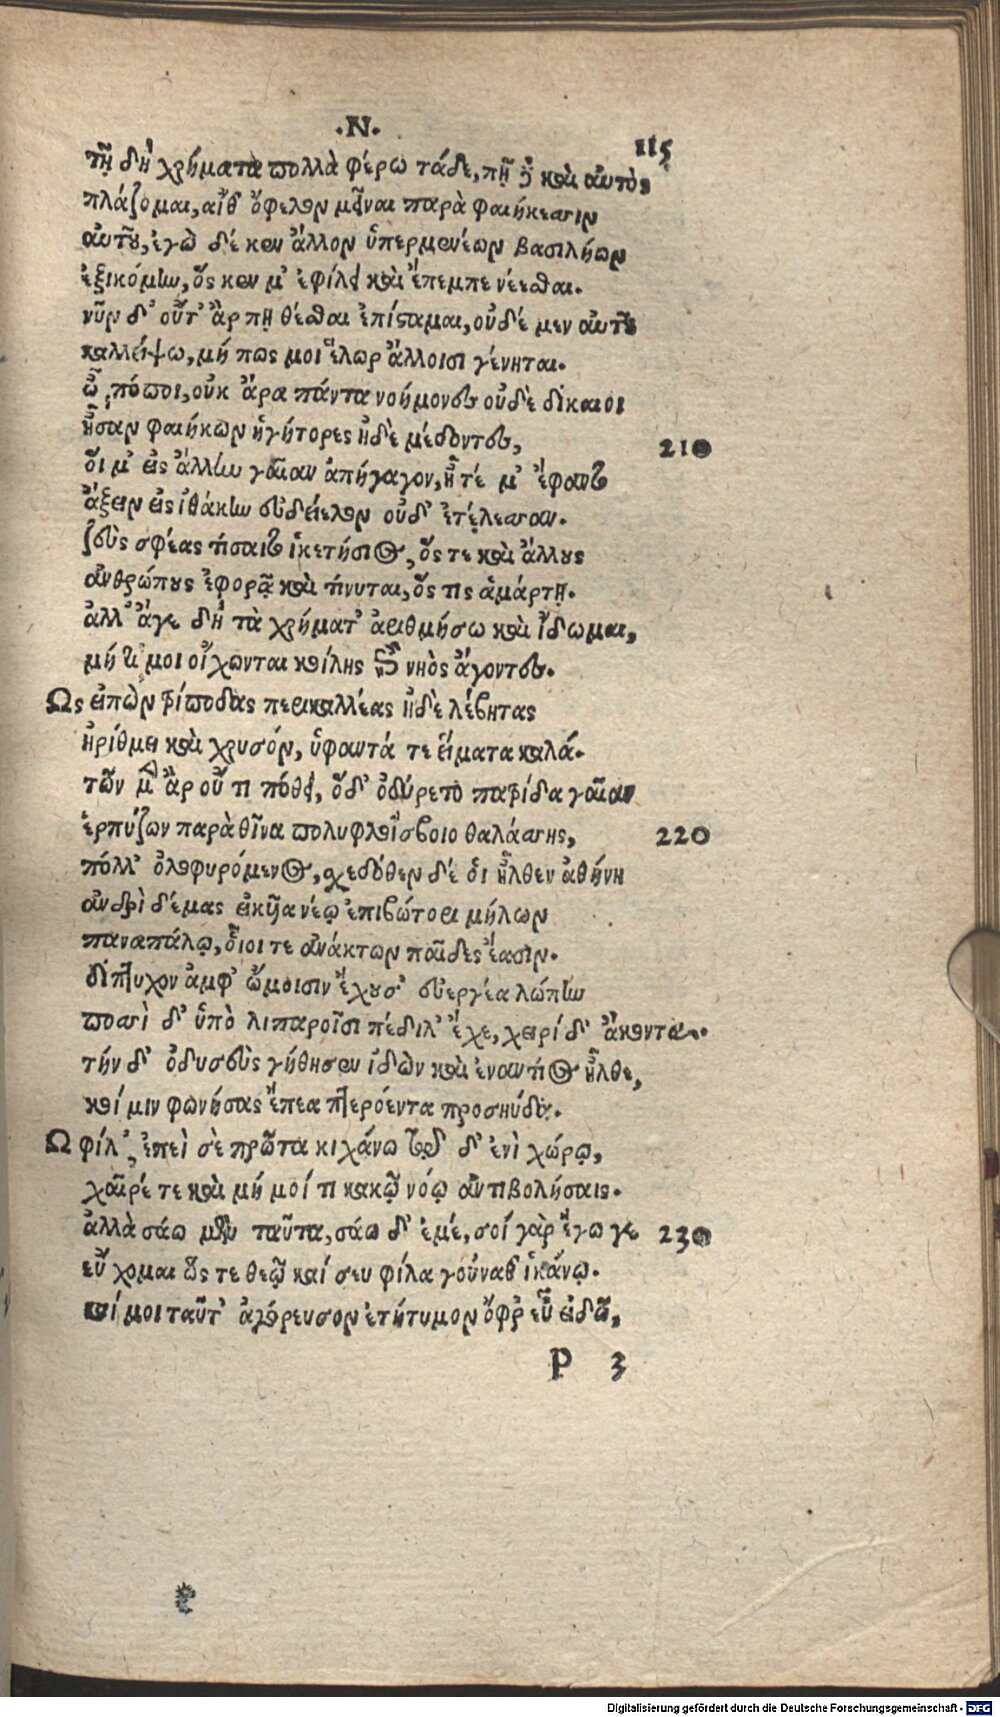 ·Ν·
115
τῇ δὴ χρήματα πολλὰ φέρω τάδε, πῇ δὲ καὶ αὐτὸς
πλάζομαι, αἴθ' ὄφελον μεῖναι παρὰ φαιήκεσσιν
αὐτοῦ, ἐγὼ δέ κεν ἄλλον ὑπερμενέων βασιλήων
ἐξικόμην, ὅς κεν μ' ἐφίλει καὶ ἔπεμπε νέεσθαι.
νῦν δ' οὔτ' ἂρ πῃ θέσθαι ἐπίσταμαι, οὐδέ μεν αὐτοῦ
καλλείψω, μή πως μοι ἕλωρ ἄλλοισι γένηται.
ὦ πόποι, οὐκ ἄρα πάντα νοήμονες οὐδὲ δίκαιοι
ἦσαν φαιήκων ἡγήτορες ἠδὲ μέδοντες, 210
οἵ μ' εἰς ἄλλην γαῖαν ἀπήγαγον, ἦ τέ μ' ἔφαντο
ἄξειν εἰς ἰθάκην εὐδείελον οὐδ' ἐτέλεσσαν.
ζεὺς σφέας τίσαιτο ἱκετήσιος, ὅς τε καὶ ἄλλους
ἀνθρώπους ἐφορᾷ καὶ τίνυται, ὅς τις ἁμάρτῃ.
ἀλλ' ἄγε δὴ τὰ χρήματ' ἀριθμήσω καὶ ἴδωμαι,
μή τί μοι οἴχωνται κοίλης ἐπὶ νηὸς ἄγοντες.
Ὣς εἰπὼν τρίποδας περικαλλέας ἠδὲ λέβητας
ἠρίθμει καὶ χρυσόν, ὑφαντά τε εἵματα καλά.
τῶν μὲν ἂρ οὔ τι πόθει, ὅδ' ὀδύρετο πατρίδα γαῖαν
ἑρπύζων παρὰ θῖνα πολυφλοίσβοιο θαλάσσης, 220
πόλλ' ὀλοφυρόμενος, σχεδόθεν δέ οἱ ἦλθεν ἀθήνη
ἀνδρὶ δέμας εἰκυῖα νέῳ ἐπιβώτορι μήλων
παναπάλῳ, οἷοί τε ἀνάκτων παῖδες ἔασιν.
δίπτυχον ἀμφ' ὤμοισιν ἔχουσ' εὐεργέα λώπην
ποσσὶ δ' ὑπὸ λιπαροῖσι πέδιλ' ἔχε, χειρί δ' ἄκοντα.
τήν δ' ὀδυσεὺς γήθησεν ἰδὼν καὶ ἐναντίος ἦλθε,
καί μιν φωνήσας ἔπεα πτερόεντα προσηύδα.
Ὦ φίλ', ἐπεὶ σὲ πρῶτα κιχάνω τῷδ' ἐνὶ χώρῳ,
χαῖρέ τε καὶ μή μοί τι κακῷ νόῳ ἀντιβολήσαις.
ἀλλὰ σάω μὲν ταῦτα, σάω δ' ἐμέ, σοί γὰρ ἔγωγε 230
εὔχομαι ὥς τε θεῷ καί σευ φίλα γούναθ' ἱκάνω.
καί μοι ταῦτ' ἀγόρευσον ἐτήτυμον ὄφρ' εὖ εἰδῶ,
P 3
Digitalisierung gefördert durch die Deutsche Forschungsgemeinschaft - DFG